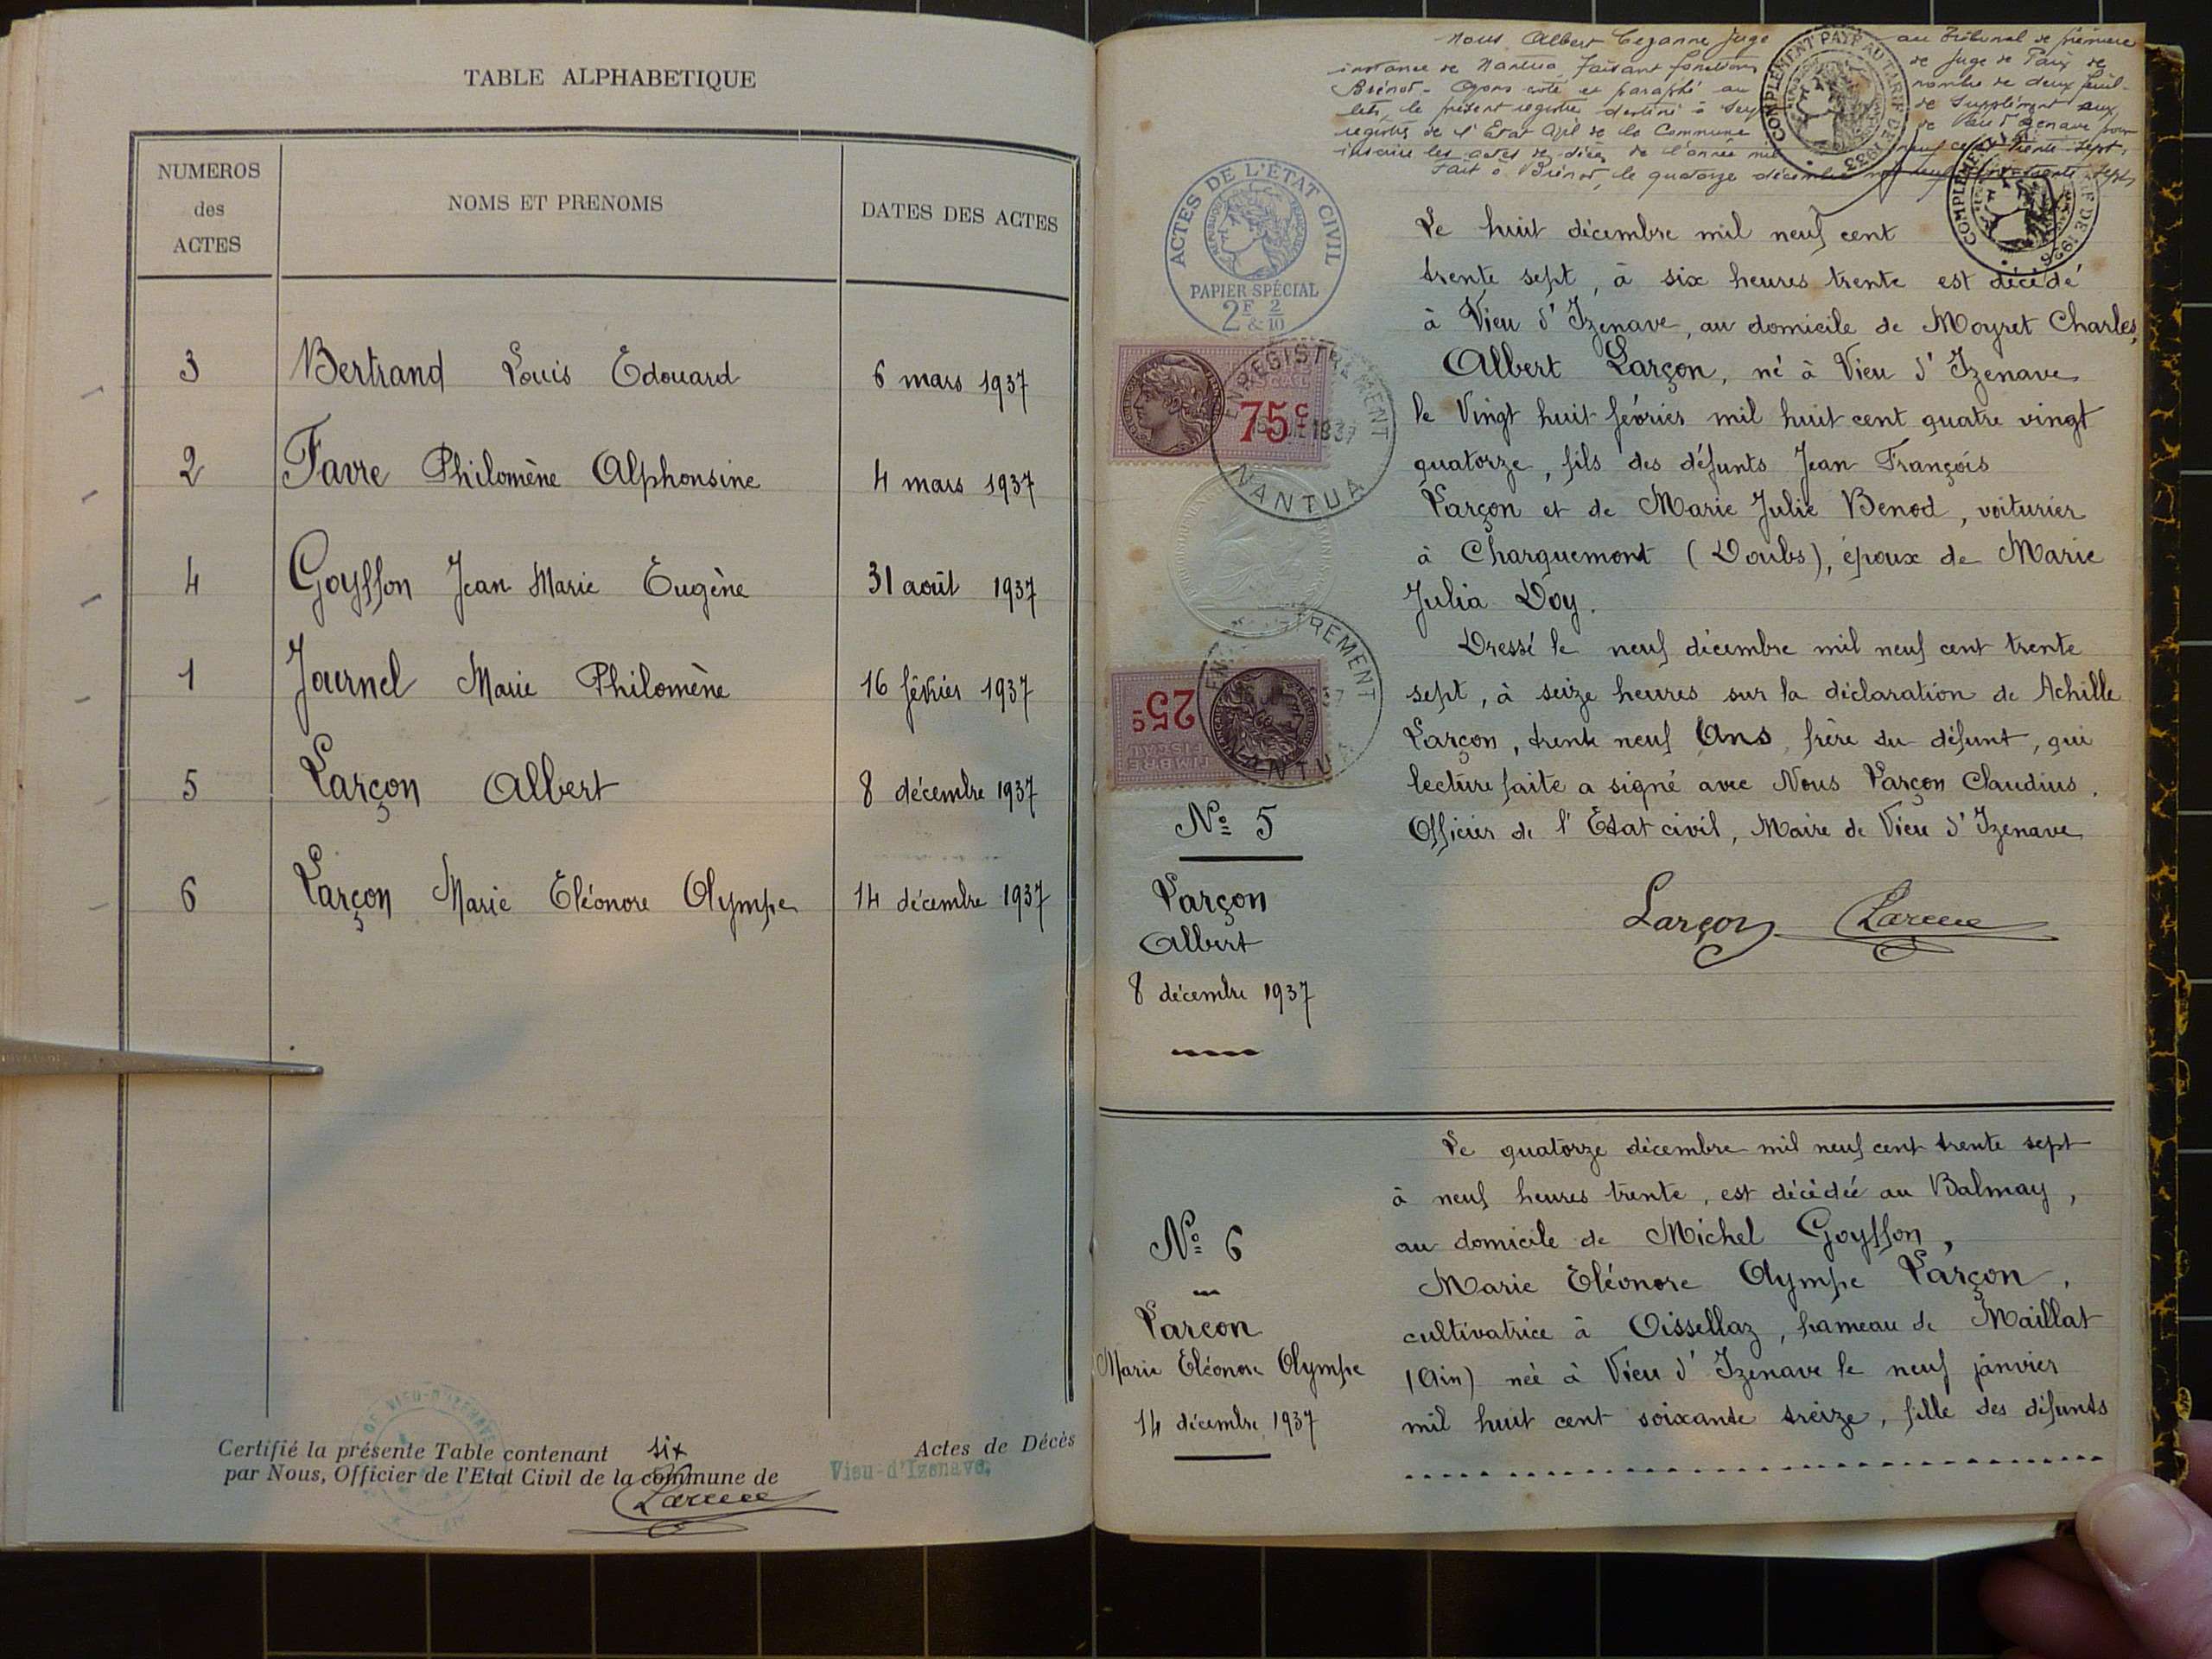 TABLE ALPHABETIQUE
NUMEROS
des
ACTES
NOMS ET PRENOMS
DATES DES ACTES
3 Bertrand Louis Edouard 6 mars 1937
2 Favre Philomène Alphonsine 4 mars 1937
4 Goyffon Jean Marie Eugène 31 août 1937
1 Journel Marie Philomène 16 février 1937
5 Larçon Albert 8 décembre 1937
6 Larçon Marie Eléonore Olympe 14 décembre 1937
Certifié la présente Table contenant six Actes de Décès
par Nous, Officier de l'Etat Civil de la commune de Vieu-d'Izenave,
Nous Albert Cezanne Juge au Tribunal de première
instance de Nantua faisant fonctions de Juge de Paix de
Brénod - Avons coté et paraphé au nombre de deux feuil-
lets, le présent registre destiné à de Supplément aux
registres de l'Etat Civil de la Commune de Vieu d'Izenave pour
inscrire les actes de décès de l'année mil neuf cent trente-sept.
Fait à Brénod, le quatorze décembre mil neuf cent trente sept
COMPLÉMENT PAYÉ AU TARIF DE 1933
ACTES DE L'ÉTAT CIVIL
PAPIER SPÉCIAL
2F & 2/10
ENREGISTREMENT
75c
NANTUA
25c
TIMBRE
FISCAL
Nº 5
Larçon
Albert
8 décembre 1937
Le huit décembre mil neuf cent
trente sept, à six heures trente est décédé
à Vieu d'Izenave, au domicile de Moyret Charles,
Albert Larçon, né à Vieu d'Izenave
le Vingt huit février mil huit cent quatre vingt
quatorze, fils des défunts Jean François
Larçon et de Marie Julie Benod, voiturier
à Charquemont (Doubs), époux de Marie
Julia Doy.
Dressé le neuf décembre mil neuf cent trente
sept, à seize heures sur la déclaration de Achille
Larçon, trente neuf Ans, frère du défunt, qui
lecture faite a signé avec Nous Larçon Claudius,
Officier de l'Etat civil, Maire de Vieu d'Izenave
Larçon
Nº 6
Larcon
Marie Eléonore Olympe
14 décembre 1937
Le quatorze décembre mil neuf cent trente sept
à neuf heures trente, est décédée au Balmay,
au domicile de Michel Goyffon,
Marie Eléonore Olympe Larçon,
cultivatrice à Oissellaz, hameau de Maillat
(Ain) née à Vieu d'Izenave le neuf janvier
mil huit cent soixante treize, fille des défunts